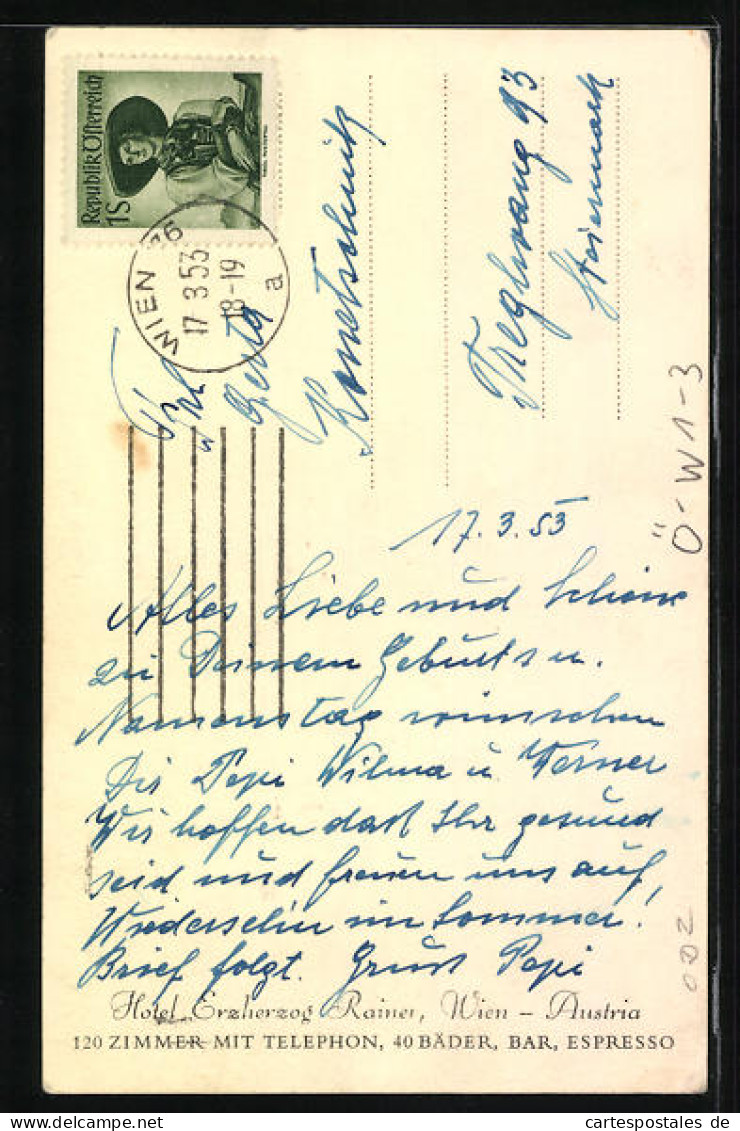 Republik Österreich
1S
WIEN 76
17.3.53
18-19
a
Frl.
Gerta
Konetschnik
Treglwang 93
Steiermark
Ö-W1-3
17.3.53
Alles Liebe und Schöne
zu Deinem Geburts u.
Namenstag wünschen
Dir Pepi Wilma u. Werner
Wir hoffen daß Ihr gesund
seid und freuen uns auf
Wiedersehn im Sommer!
Brief folgt. Gruß Pepi
Hotel Erzherzog Rainer, Wien – Austria
120 ZIMMER MIT TELEPHON, 40 BÄDER, BAR, ESPRESSO
cartespostales de